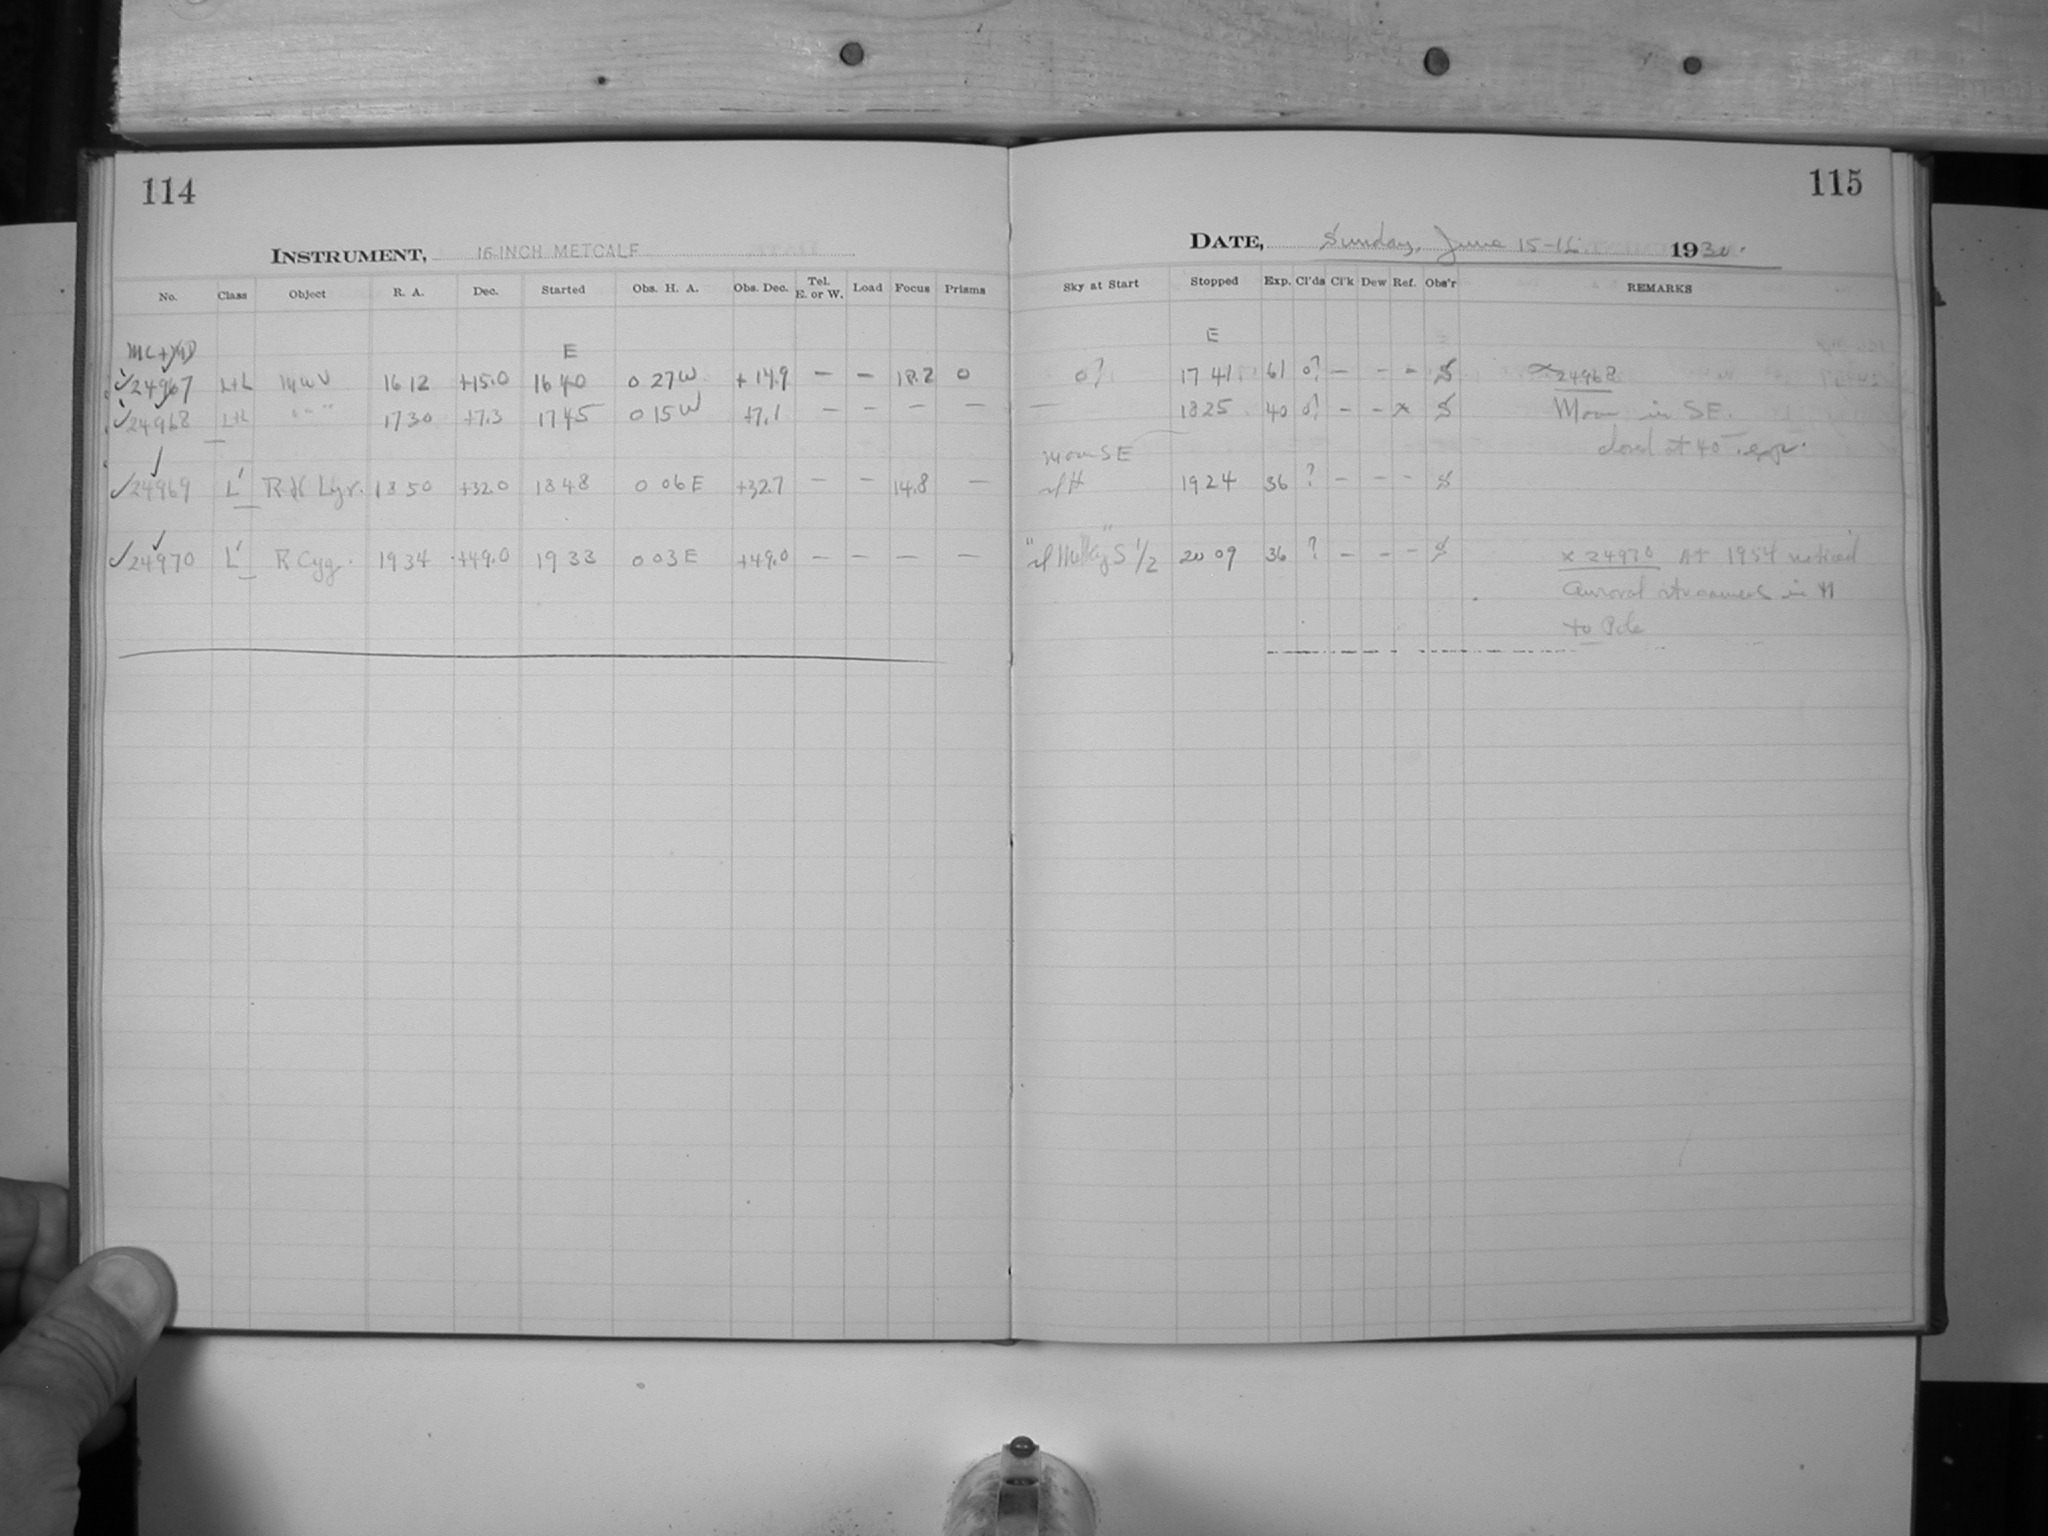 114
INSTRUMENT, 16-INCH METCALF
No. Class Object R. A. Dec. Started Obs. H. A. Obs. Dec. Tel. E. or W. Load Focus Prisms
E
24967 L+L 16 12 +15.0 16 40 0 27 W +14.9 — — 18.2 0
24968 L+L " " " 17 30 +7.3 17 45 0 15 W +7.1 — — — —
24969 L' 18 50 +32.0 18 48 0 06 E +32.7 — — 14.8 —
24970 L' R Cyg. 19 34 +49.0 19 33 0 03 E +49.0 — — — —
115
DATE, Sunday, June 15-16 1930.
Sky at Start Stopped Exp. Cl'ds Cl'k Dew Ref. Obs'r REMARKS
E
0? 17 41 61 0? — - - S x 24968
— 18 25 40 0? — - x S Moon in SE.
closed at 40
Moon SE
19 24 36 ? — - - S
S 1/2 20 09 36 ? — - - S x 24970 At 1954 noticed
Auroral streamers in N
to Pole